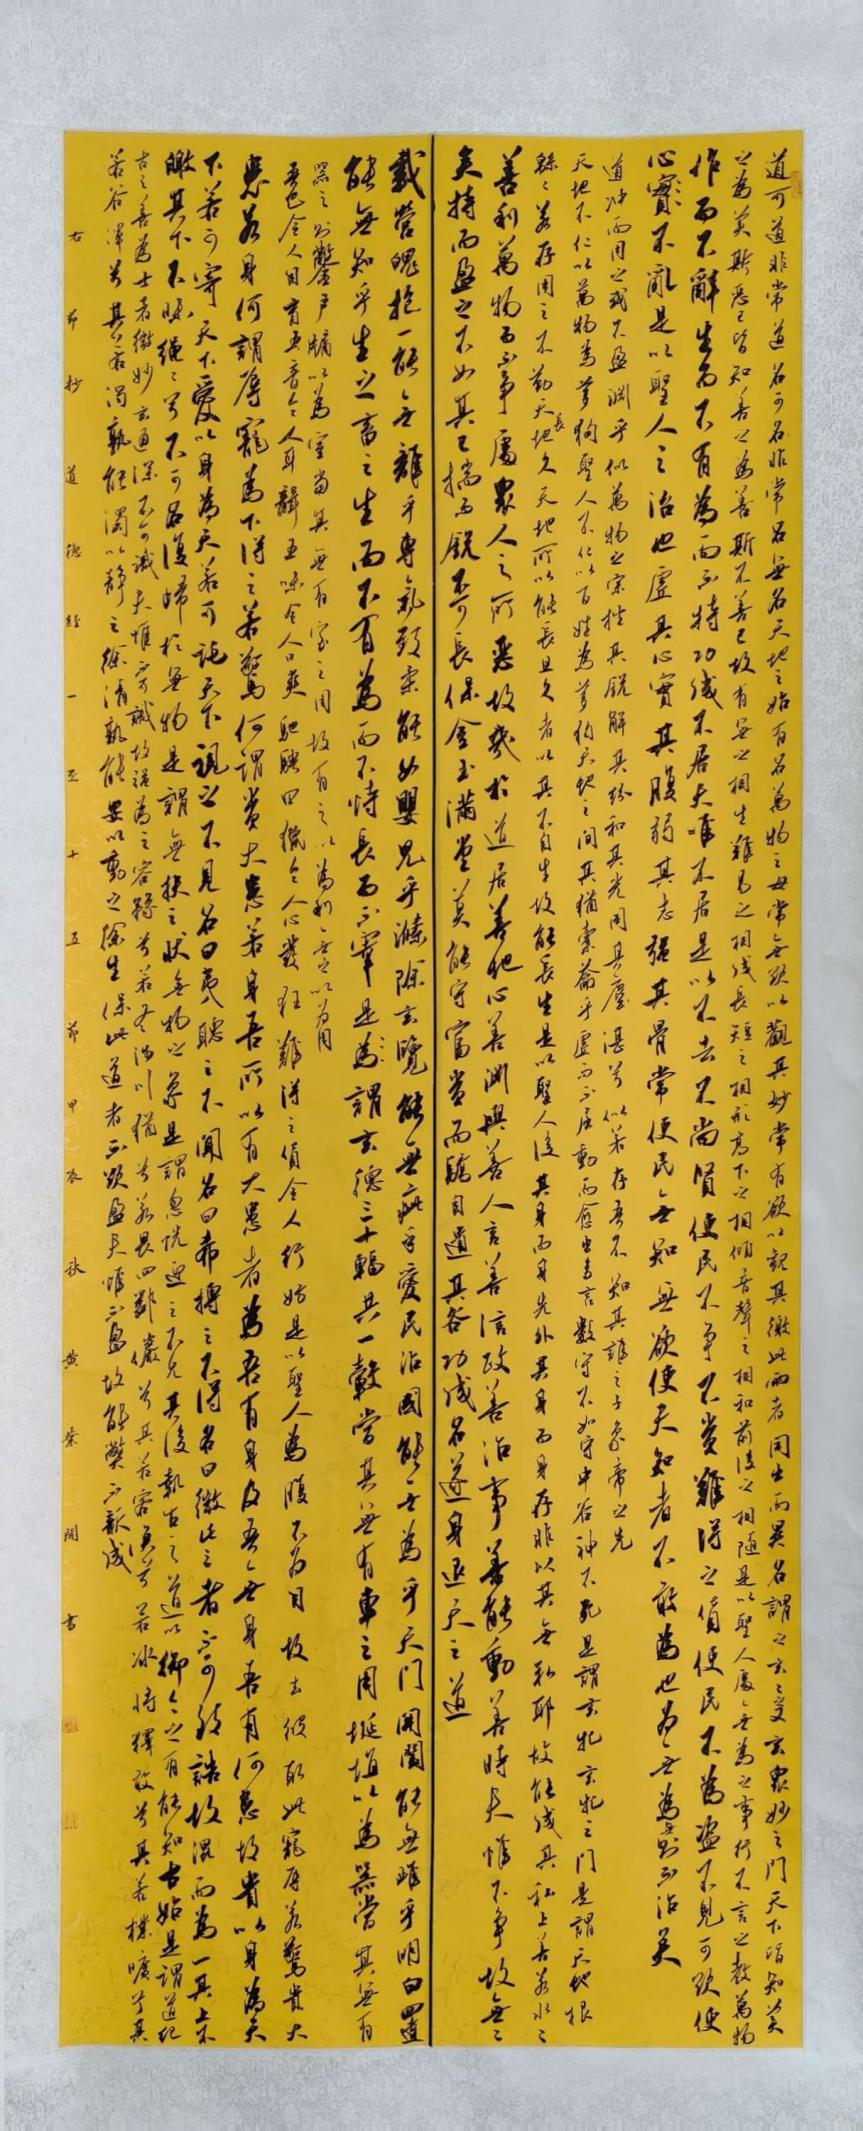 道可道非常道名可名非常名無名天地之始有名萬物之母常無欲以觀其妙常有欲以觀其徼此兩者同出而異名謂之玄之又玄眾妙之門天下皆知美
之為美斯惡已皆知善之為善斯不善已故有無之相生難易之相成長短之相形高下之相傾音聲之相和前後之相隨是以聖人處無為之事行不言之教萬物
作而不辭生而不有為而不恃功成不居夫唯不居是以不去不尚賢使民不爭不貴難得之貨使民不為盜不見可欲使
心實不亂是以聖人之治也虛其心實其腹弱其志強其骨常使民無知無欲使夫知者不敢為也為無為則不治矣
道沖而用之或不盈淵乎似萬物之宗挫其銳解其紛和其光同其塵湛兮似若存吾不知其誰之子象帝之先
天地不仁以萬物為芻狗聖人不仁以百姓為芻狗天地之間其猶橐籥乎虛而不屈動而愈出多言數窮不如守中谷神不死是謂玄牝玄牝之門是謂天地根
綿綿若存用之不勤天地長久天地所以能長且久者以其不自生故能長生是以聖人後其身而身先外其身而身存非以其無私耶故能成其私上善若水水
善利萬物而不爭處眾人之所惡故幾於道居善地心善淵與善人言善信政善治事善能動善時夫惟不爭故無
矣持而盈之不如其已揣而銳不可長保金玉滿堂莫能守富貴而驕自遺其咎功成名遂身退天之道
載營魄抱一能無離乎專氣致柔能如嬰兒乎滌除玄覽能無疵乎愛民治國能無為乎天門開闔能無雌乎明白四達
能無知乎生之畜之生而不有為而不恃長而不宰是為謂玄德三十輻共一轂當其無有車之用埏埴以為器當其無有
器之用鑿戶牖以為室當其無有室之用故有之以為利無之以為用
五色令人目盲五音令人耳聾五味令人口爽馳騁田獵令人心發狂難得之貨令人行妨是以聖人為腹不為目故去彼取此寵辱若驚貴大
患若身何謂辱寵為下得之若驚何謂貴大患若身吾所以有大患者為吾有身及吾無身吾有何患故貴以身為天
下若可寄天下愛以身為天若可託天下視之不見名曰夷聽之不聞名曰希搏之不得名曰微此三者不可致詰故混而為一其上不
皦其下不昧繩繩兮不可名復歸於無物是謂無狀之狀無物之象是謂忽恍迎之不見其後執古之道以御今之有能知古始是謂道紀
古之善為士者微妙玄通深不可識夫惟不可識故強為之容豫兮若冬涉川猶兮若畏四鄰儼兮其若客渙兮若冰將釋敦兮其若樸曠兮其
若谷渾兮其若濁孰能濁以靜之徐清孰能安以動之徐生保此道者不欲盈夫惟不盈故能弊不新成
右節抄道德經一至十五節甲辰秋黃榮開書